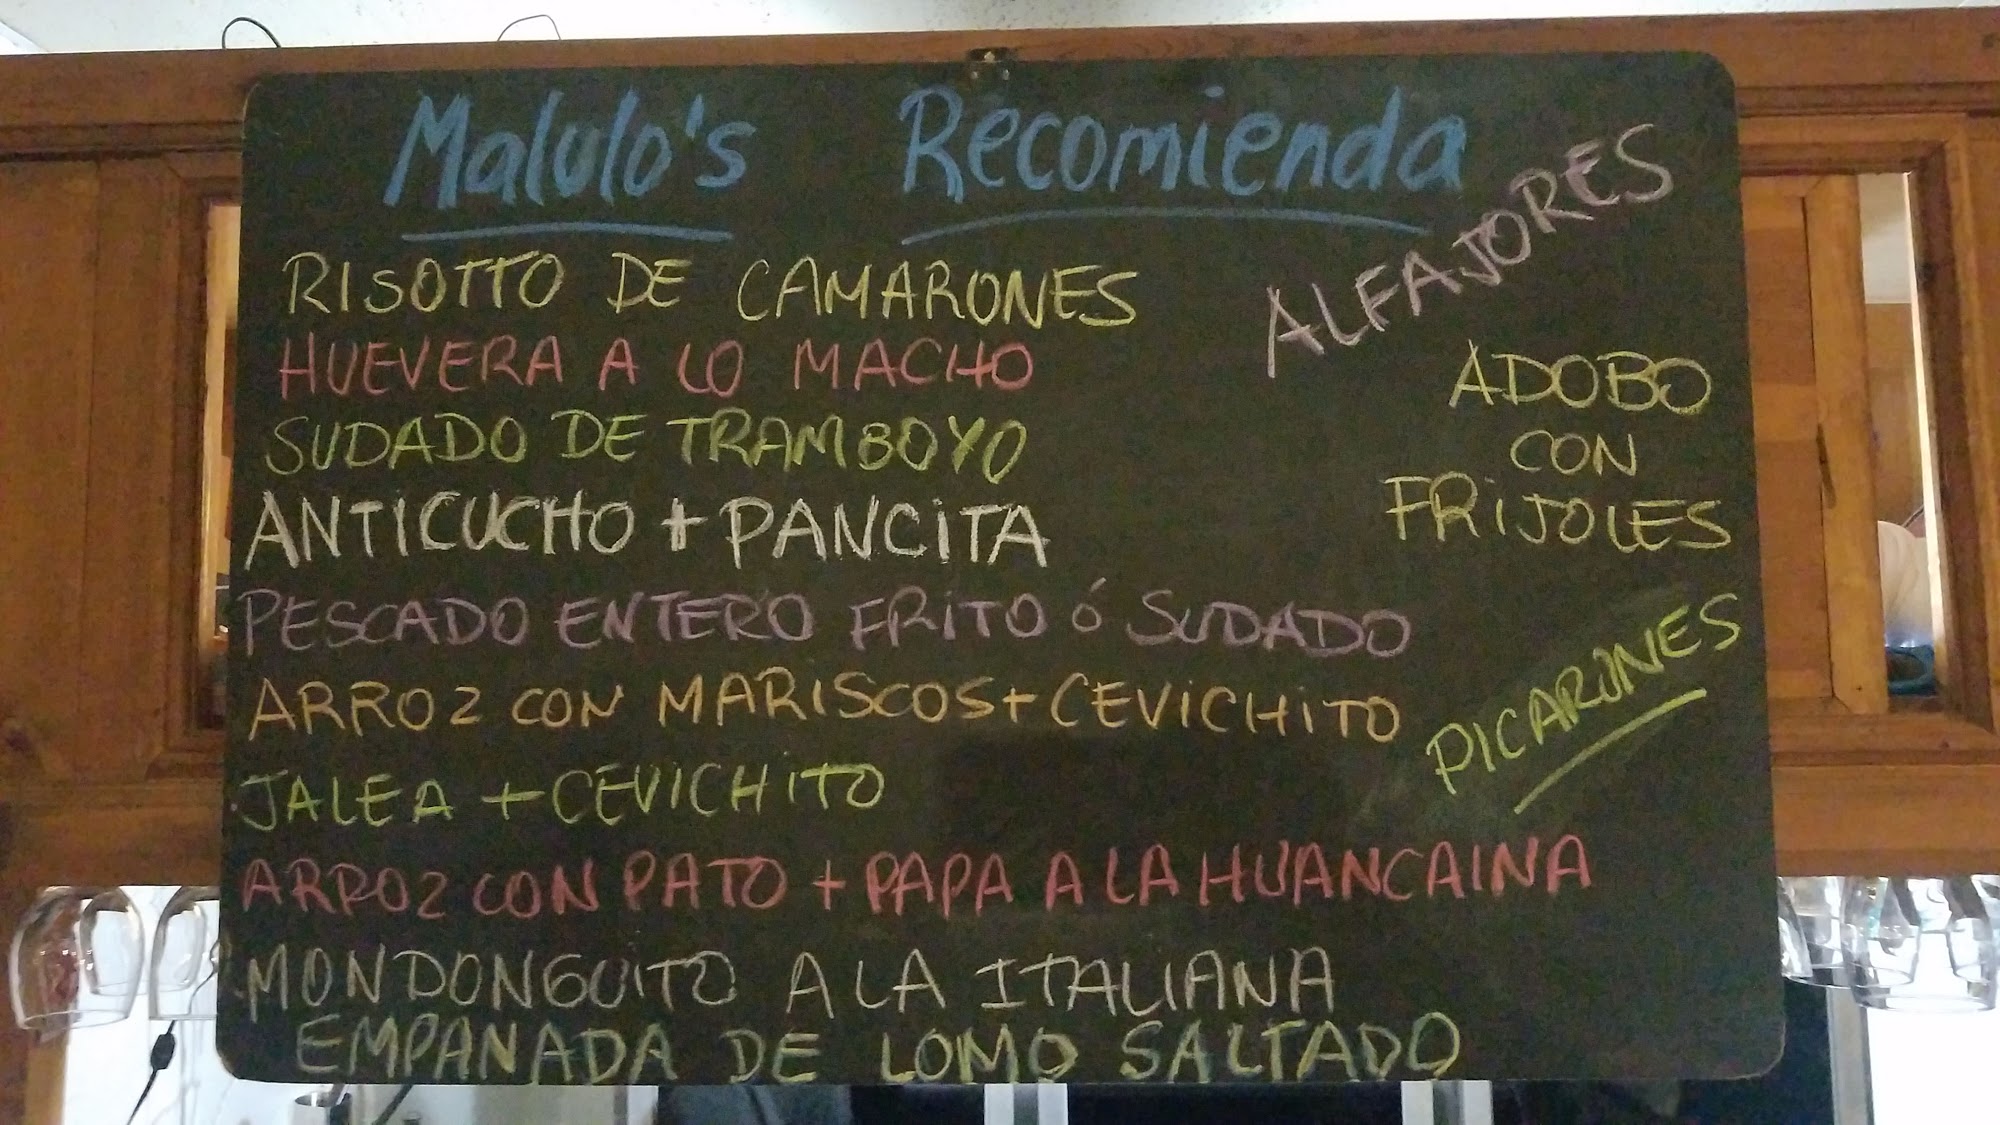 Malulo's Recomienda
RISOTTO DE CAMARONES
HUEVERA A LO MACHO
SUDADO DE TRAMBOYO
ANTICUCHO + PANCiTA
PESCADO ENTERO FRiTO ó SUDADO
ARROZ CON MARISCOS + CEVICHITO
JALEA + CEVICHITO
ARROZ CON PATO + PAPA A LA HUANCAINA
MONDONGUiTO A LA ITALIANA
EMPANADA DE LOMO SALTADO
ALFAJORES
ADOBO
CON
FRiJOLES
PICARONES